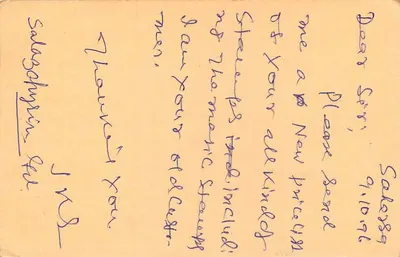 Saharsa
9.10.96
Dear Sir,
Please send
me a New pricelist
of your all kind of
Stamps includi
ng Thematic stamps
I am your old custo-
mer.
Thanking you